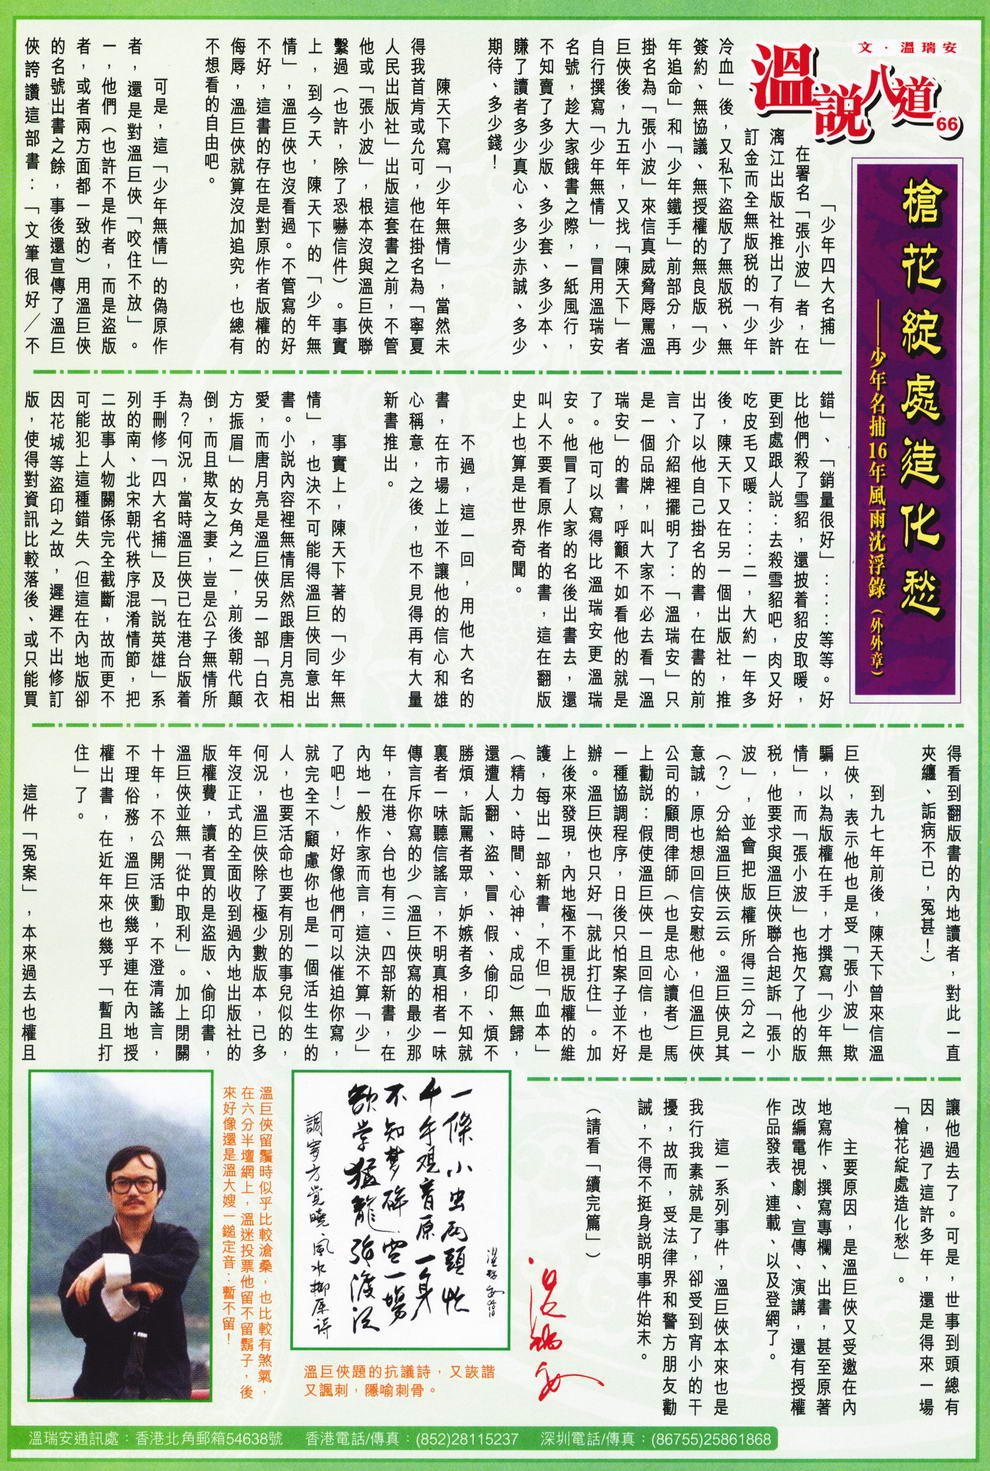 文．溫瑞安
溫說八道
66
槍花綻處造化愁
——少年名捕16年風雨沈浮錄（外外章）
「少年四大名捕」
在署名「張小波」者，在
漓江出版社推出了有少許
訂金而全無版税的「少年
冷血」後，又私下盜版了無版税、無
簽約、無協議、無授權的無良版「少
年追命」和「少年鐵手」前部分，再
掛名為「張小波」來信真威脅辱罵溫
巨俠後，九五年，又找「陳天下」者
自行撰寫「少年無情」，冒用溫瑞安
名號，趁大家餓書之際，一紙風行，
不知賣了多少版、多少套、多少本、
賺了讀者多少真心、多少赤誠、多少
期待、多少錢！
陳天下寫「少年無情」，當然未
得我首肯或允可，他在掛名為「寧夏
人民出版社」出版這套書之前，不管
他或「張小波」，根本沒與溫巨俠聯
繫過（也許，除了恐嚇信件）。事實
上，到今天，陳天下的「少年無
情」，溫巨俠也沒看過。不管寫的好
不好，這書的存在是對原作者版權的
侮辱，溫巨俠就算沒加追究，也總有
不想看的自由吧。
可是，這「少年無情」的偽原作
者，還是對溫巨俠「咬住不放」。
一，他們（也許不是作者，而是盜版
者，或者兩方面都一致的）用溫巨俠
的名號出書之餘，事後還宣傳了溫巨
俠誇讚這部書：「文筆很好／不
錯」、「銷量很好」……等等。好
比他們殺了雪貂，還披着貂皮取暖，
更到處跟人説：去殺雪貂吧，肉又好
吃皮毛又暖……二，大約一年多
後，陳天下又在另一個出版社，推
出了以他自己掛名的書，在書的前
言、介紹裡擺明了：「溫瑞安」只
是一個品牌，叫大家不必去看「溫
瑞安」的書，呼籲不如看他的就是
了。他可以寫得比溫瑞安更溫瑞
安。他冒了人家的名後出書去，還
叫人不要看原作者的書，這在翻版
史上也算是世界奇聞。
不過，這一回，用他大名的
書，在市場上並不讓他的信心和雄
心稱意，之後，也不見得再有大量
新書推出。
事實上，陳天下著的「少年無
情」，也決不可能得溫巨俠同意出
書。小説內容裡無情居然跟唐月亮相
愛，而唐月亮是溫巨俠另一部「白衣
方振眉」的女角之一，前後朝代顛
倒，而且欺友之妻，豈是公子無情所
為？何況，當時溫巨俠已在港台版着
手刪修「四大名捕」及「説英雄」系
列的南、北宋朝代秩序混淆情節，把
二故事人物關係完全截斷，故而更不
可能犯上這種錯失（但這在內地版卻
因花城等盜印之故，遲遲不出修訂
版，使得對資訊比較落後、或只能買
得看到翻版書的內地讀者，對此一直
夾纏、詬病不已，冤甚！）
到九七年前後，陳天下曾來信溫
巨俠，表示他也是受「張小波」欺
騙，以為版權在手，才撰寫「少年無
情」，而「張小波」也拖欠了他的版
税，他要求與溫巨俠聯合起訴「張小
波」，並會把版權所得三分之一
（？）分給溫巨俠云云。溫巨俠見其
意誠，原也想回信安慰他，但溫巨俠
公司的顧問律師（也是忠心讀者）馬
上勸説：假使溫巨俠一旦回信，也是
一種協調程序，日後只怕案子並不好
辦。溫巨俠也只好「就此打住」。加
上後來發現，內地極不重視版權的維
護，每出一部新書，不但「血本」
（精力、時間、心神、成品）無歸，
還遭人翻、盜、冒、假、偷印、煩不
勝煩，詬罵者眾，妒嫉者多，不知就
裏者一味聽信謠言，不明真相者一味
傳言斥你寫的少（溫巨俠寫的最少那
年，在港、台也有三、四部新書，在
內地一般作家而言，這決不算「少」
了吧！），好像他們可以催迫你寫，
就完全不顧慮你也是一個活生生的
人，也要活命也要有別的事兒似的，
何況，溫巨俠除了極少數版本，已多
年沒正式的全面收到過內地出版社的
版權費，讀者買的是盜版、偷印書，
溫巨俠並無「從中取利」。加上閉關
十年，不公開活動，不澄清謠言，
不理俗務，溫巨俠幾乎連在內地授
權出書，在近年來也幾乎「暫且打
住」了。
這件「冤案」，本來過去也權且
讓他過去了。可是，世事到頭總有
因，過了這許多年，還是得來一場
「槍花綻處造化愁」。
主要原因，是溫巨俠又受邀在內
地寫作、撰寫專欄、出書，甚至原著
改編電視劇、宣傳、演講，還有授權
作品發表、連載、以及登網了。
這一系列事件，溫巨俠本來也是
我行我素就是了，卻受到宵小的干
擾，故而，受法律界和警方朋友勸
誡，不得不挺身説明事件始末。
（請看「續完篇」）
溫瑞安
一條小虫兩頭忙
千年觀音原一身
不知夢碎空一場
欲學猛龍強渡江
調寄方覺曉、風水柳屏诗
溫巨俠題的抗議詩，又詼諧
又諷刺，隱喻刺骨。
溫巨俠留鬚時似乎比較滄桑，也比較有煞氣，
在六分半壇網上，溫迷投票他留不留鬍子，後
來好像還是溫大嫂一鎚定音：暫不留！
溫瑞安通訊處：香港北角郵箱54638號　香港電話/傳真：(852)28115237　深圳電話/傳真：(86755)25861868